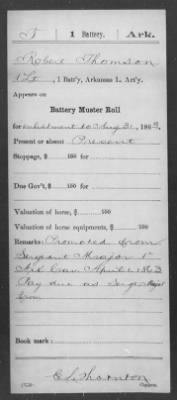 T | 1 Battery. | Ark.
Robert Thomson
1 Lt, 1 Batt'y, Arkansas L. Art'y.
Appears on
Battery Muster Roll
for enlistment to Aug 31, 1863.
Present or absent Present
Stoppage, $ 100 for
Due Gov't, $ 100 for
Valuation of horse, $ 100
Valuation of horse equipments, $ 100
Remarks: Promoted from
Sergeant Major 1st
Ark Cav. April 1863
Pay due as Serg Major
from
Book mark:
Copyist.